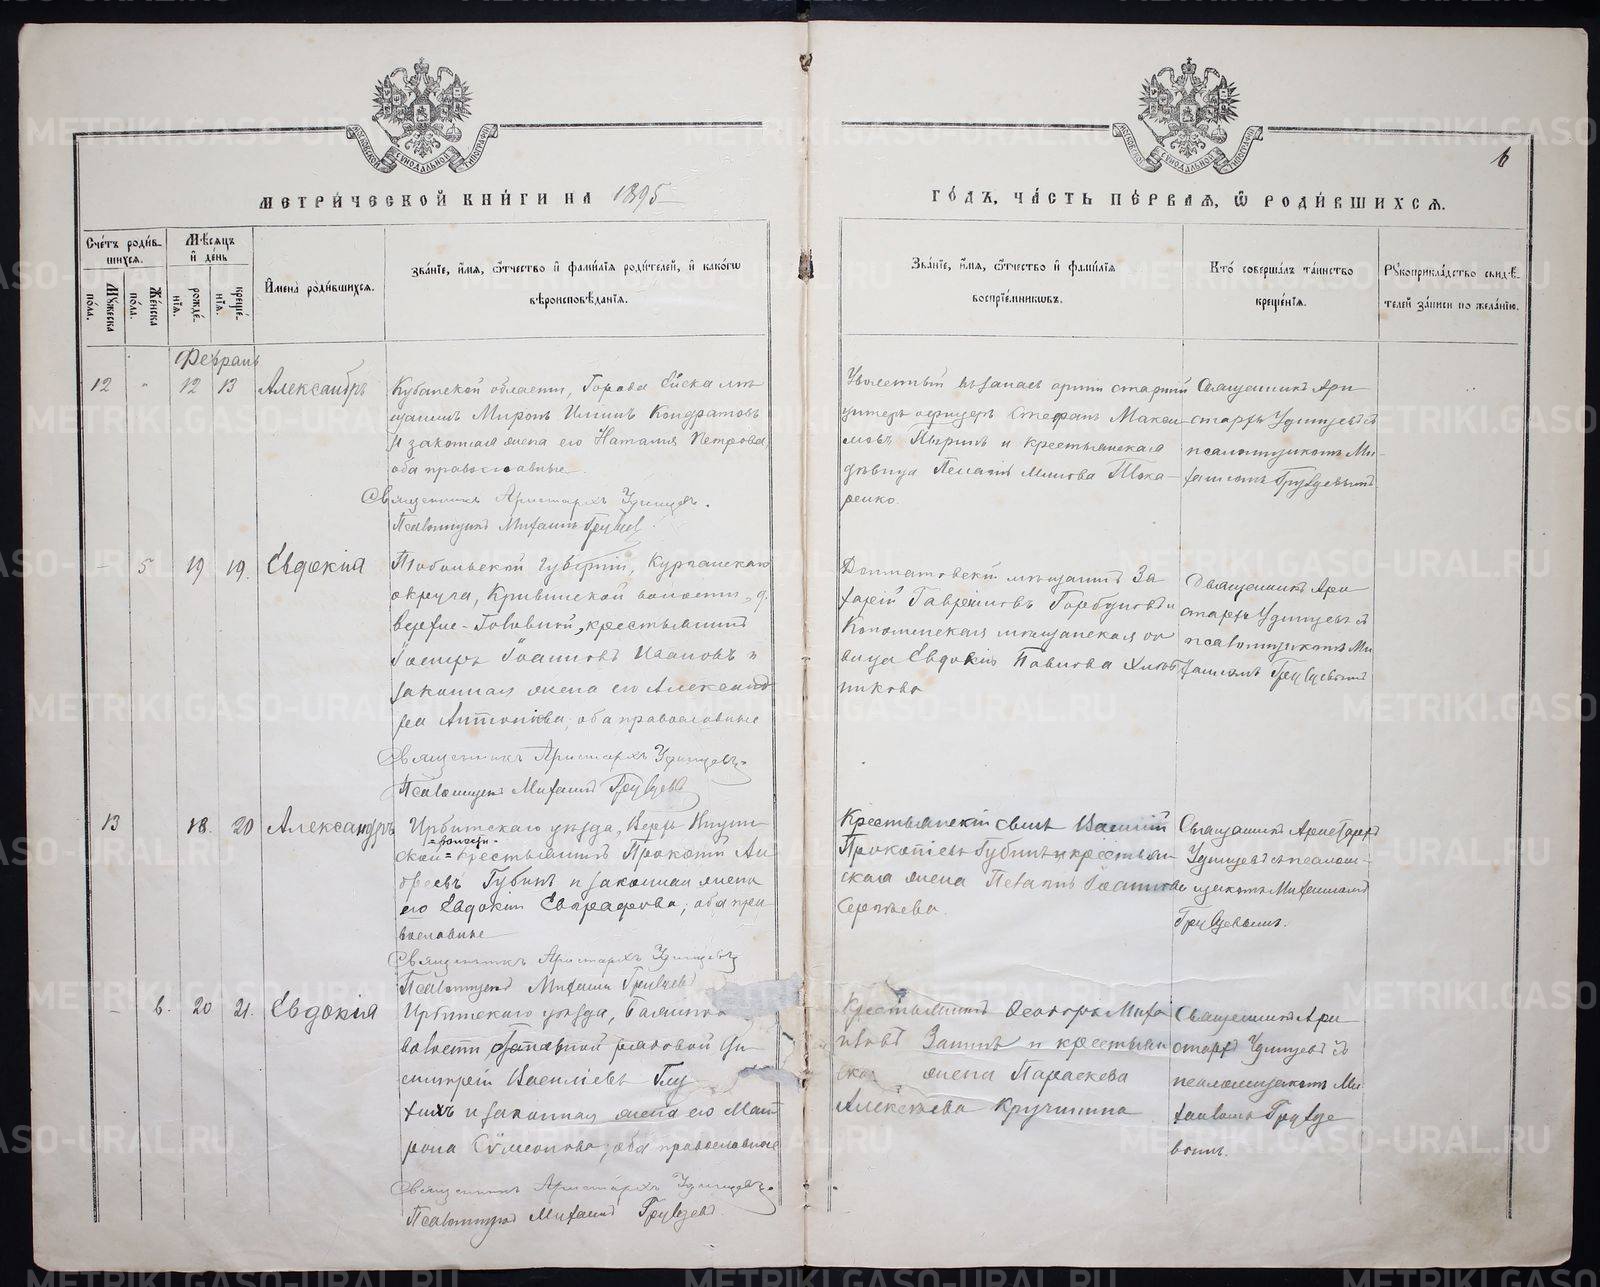 МЕТРИ́ЧЕСКОЙ КНИ́ГИ НА 1895
ГО́ДЪ, ЧА́СТЬ ПЕ́РВАѦ, Ѿ РОДИ́ВШИХСѦ.
6
Сче́тъ роди́в-
шихсѧ.
Мꙋ́жеска
по́ла.
Же́нска
по́ла.
Мѣ́сѧцъ
и҆ де́нь
рожде́-
нїѧ.
креще́-
нїѧ.
И҆мена̀ роди́вшихсѧ.
Зва́нїе, и҆́мѧ, ѻ҆́тчество и҆ фами́лїѧ роди́телей, и҆ како́гѡ
вѣроисповѣ́данїѧ.
Зва́нїе, и҆́мѧ, ѻ҆́тчество и҆ фами́лїѧ
воспрїе́мникѡвъ.
Кто̀ соверша́лъ та́инство
креще́нїѧ.
Рꙋкоприкла́дство свидѣ́-
телей за́писи по жела́нїю.
Февраль
12 " 12 13 Александръ
Кубанской области, Города Ейска мѣ
щанинъ Миронъ Ильинъ Кондратовъ
и законная жена его Наталия Петрова,
оба православные.
Священникъ Аристархъ Удинцевъ.
Псаломщикъ Михаилъ Груздев
Уволенный въ запасъ армии старший
унтеръ офицеръ Стефанъ Макси
мовъ Пыринъ и крестьянская
дѣвица Пелагия
ренко
Священникъ Ари
стархъ Удинцевъ съ
псаломщикомъ Ми-
хаиломъ Груздевымъ
— 5 19 19. Евдокія
Тобольской губерніи, Курганскаго
округа, Кривинской волости, д
веревне Головной, крестьянинъ
Іоаннов Ивановъ и
законная жена его Александ
ра Антонова, оба православные
Священникъ Аристархъ Удинцевъ.
Псаломщикъ Михаилъ Груздевъ
Долматовскій мѣщанинъ За
харій Гавриловъ Горбуновъ и
Коломенская мѣщанская дѣ
вица Евдокія Павлова
никова
Священникъ Ари
стархъ Удинцевъ съ
псаломщикомъ Ми
хаиломъ Груздевымъ
13 18. 20 Александръ
Ирбитскаго уѣзда, Верхъ Ницин
волости
ской крестьянинъ Прокопій Ан
дреевъ Губинъ и законная жена
его Евдокия Евграфова, оба пра
вославные
Священникъ Аристархъ Удинцевъ
Псаломщикъ Михаилъ Груздевъ
Крестьянскій сынъ Василій
Прокопіевъ Губинъ и крестьян-
ская жена Пелагия Іоаннова
Сергѣева.
Священникъ Аристархъ
Удинцевъ съ псалом-
щикомъ Михаиломъ
Груздевымъ.
— 6. 20 21. Евдокія
Ирбитскаго уѣзда,
волости отставной рядовой Ди
митрій Василіевъ Глу
хихъ и законная жена его Мат
рона Симеонова, оба православные
Священникъ Аристархъ Удинцевъ.
Псаломщикъ Михаилъ Груздевъ
Крестьянинъ Ѳеодоръ Миха
иловъ Заминъ и крестьян
ская жена Параскева
Алексѣева Кручинина
Священникъ Ари
стархъ Удинцевъ съ
псаломщикомъ Ми
хаиломъ Груздe
вымъ.
METRIKI.GASO-URAL.RU